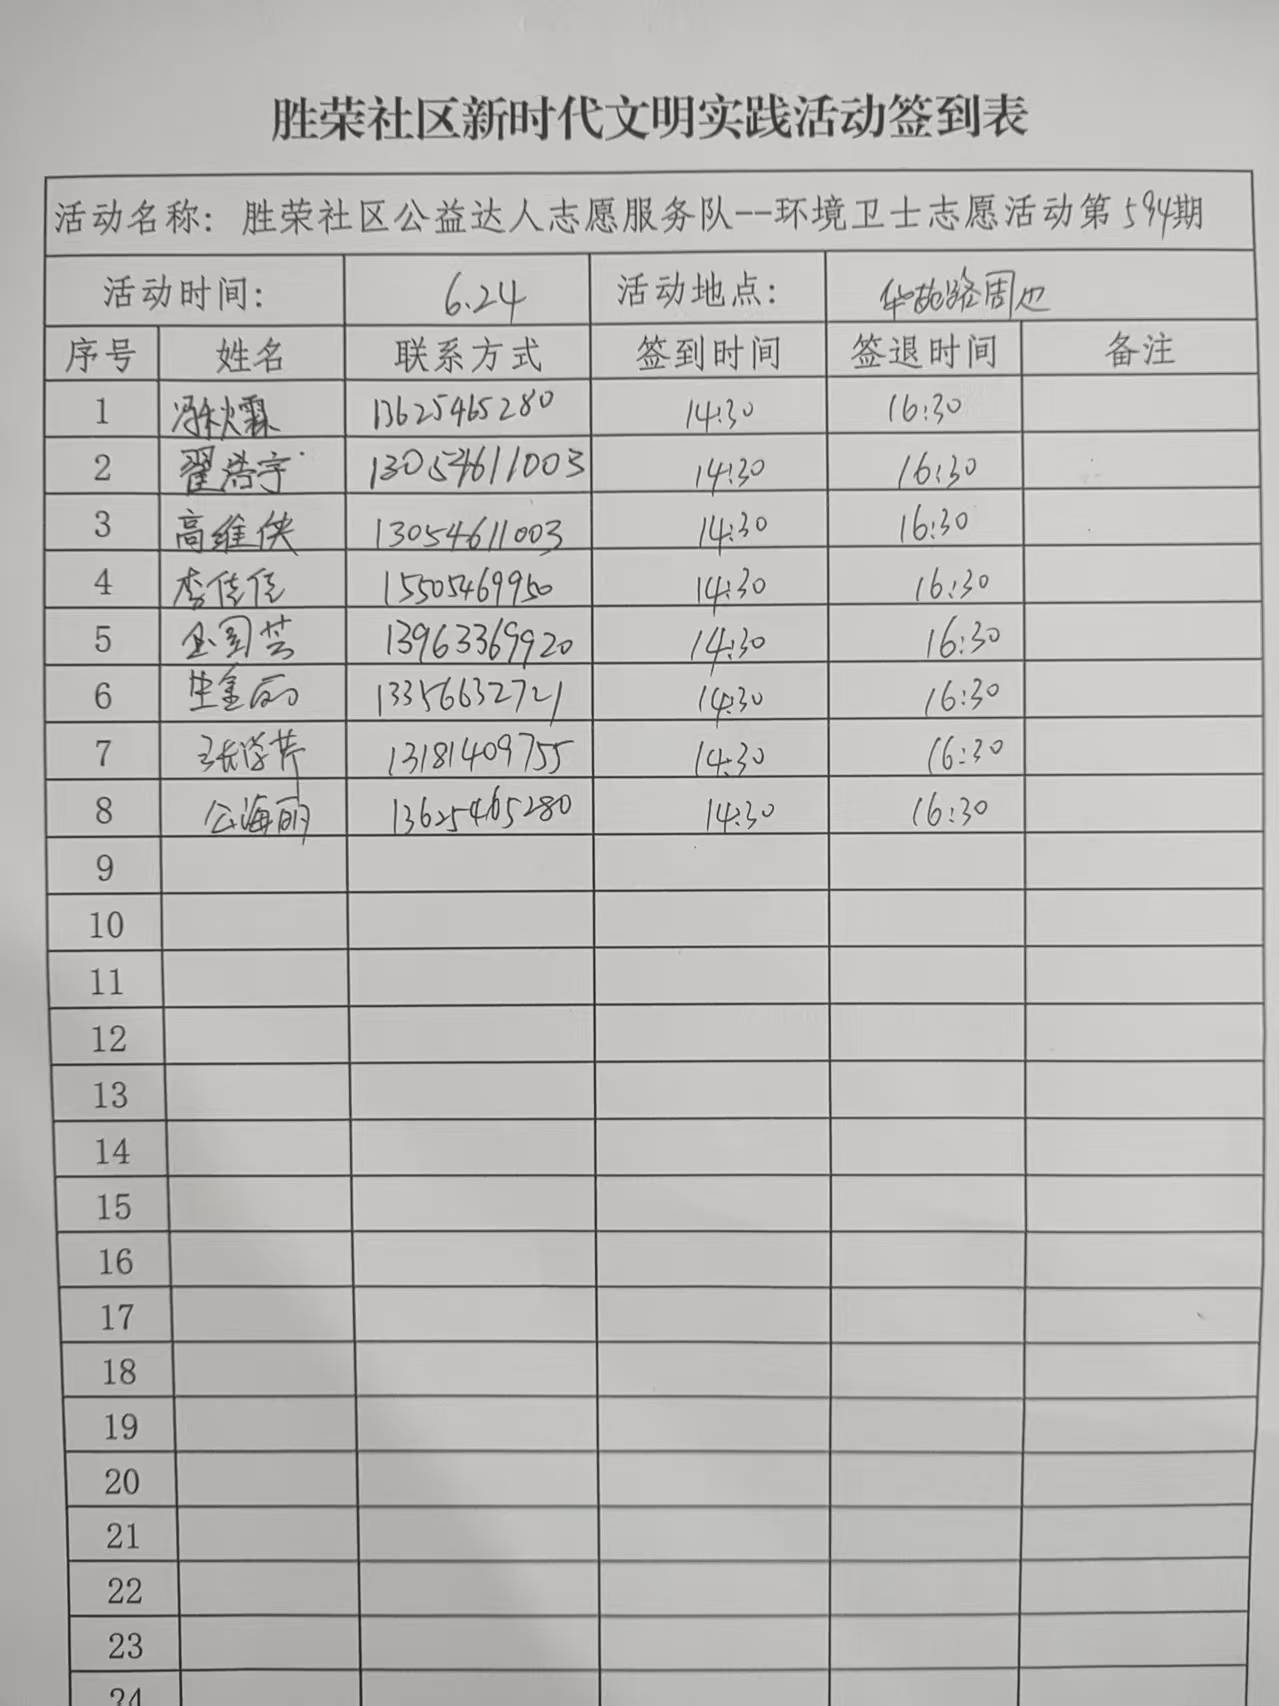 胜荣社区新时代文明实践活动签到表
活动名称：胜荣社区公益达人志愿服务队--环境卫士志愿活动第594期
活动时间： 6.24 活动地点： 路周边
序号 姓名 联系方式 签到时间 签退时间 备注
1 冯秋霖 13625465280 14:30 16:30
2 翟浩宇 13054611003 14:30 16:30
3 高维侠 13054611003 14:30 16:30
4 李佳佳 15505469950 14:30 16:30
5 13963369920 14:30 16:30
6 13356632721 14:30 16:30
7 张学芹 13181409755 14:30 16:30
8 公海丽 13625465280 14:30 16:30
9
10
11
12
13
14
15
16
17
18
19
20
21
22
23
24